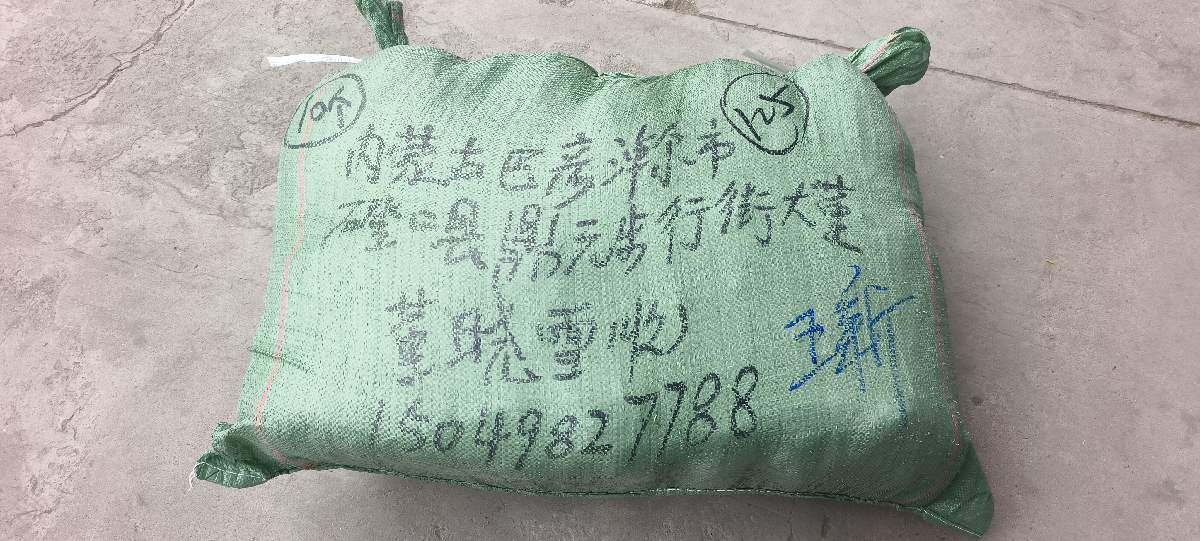 10个
125
内蒙古巴彦淖尔市
磴口县 元步行街大董
董晓雪收
15049827788